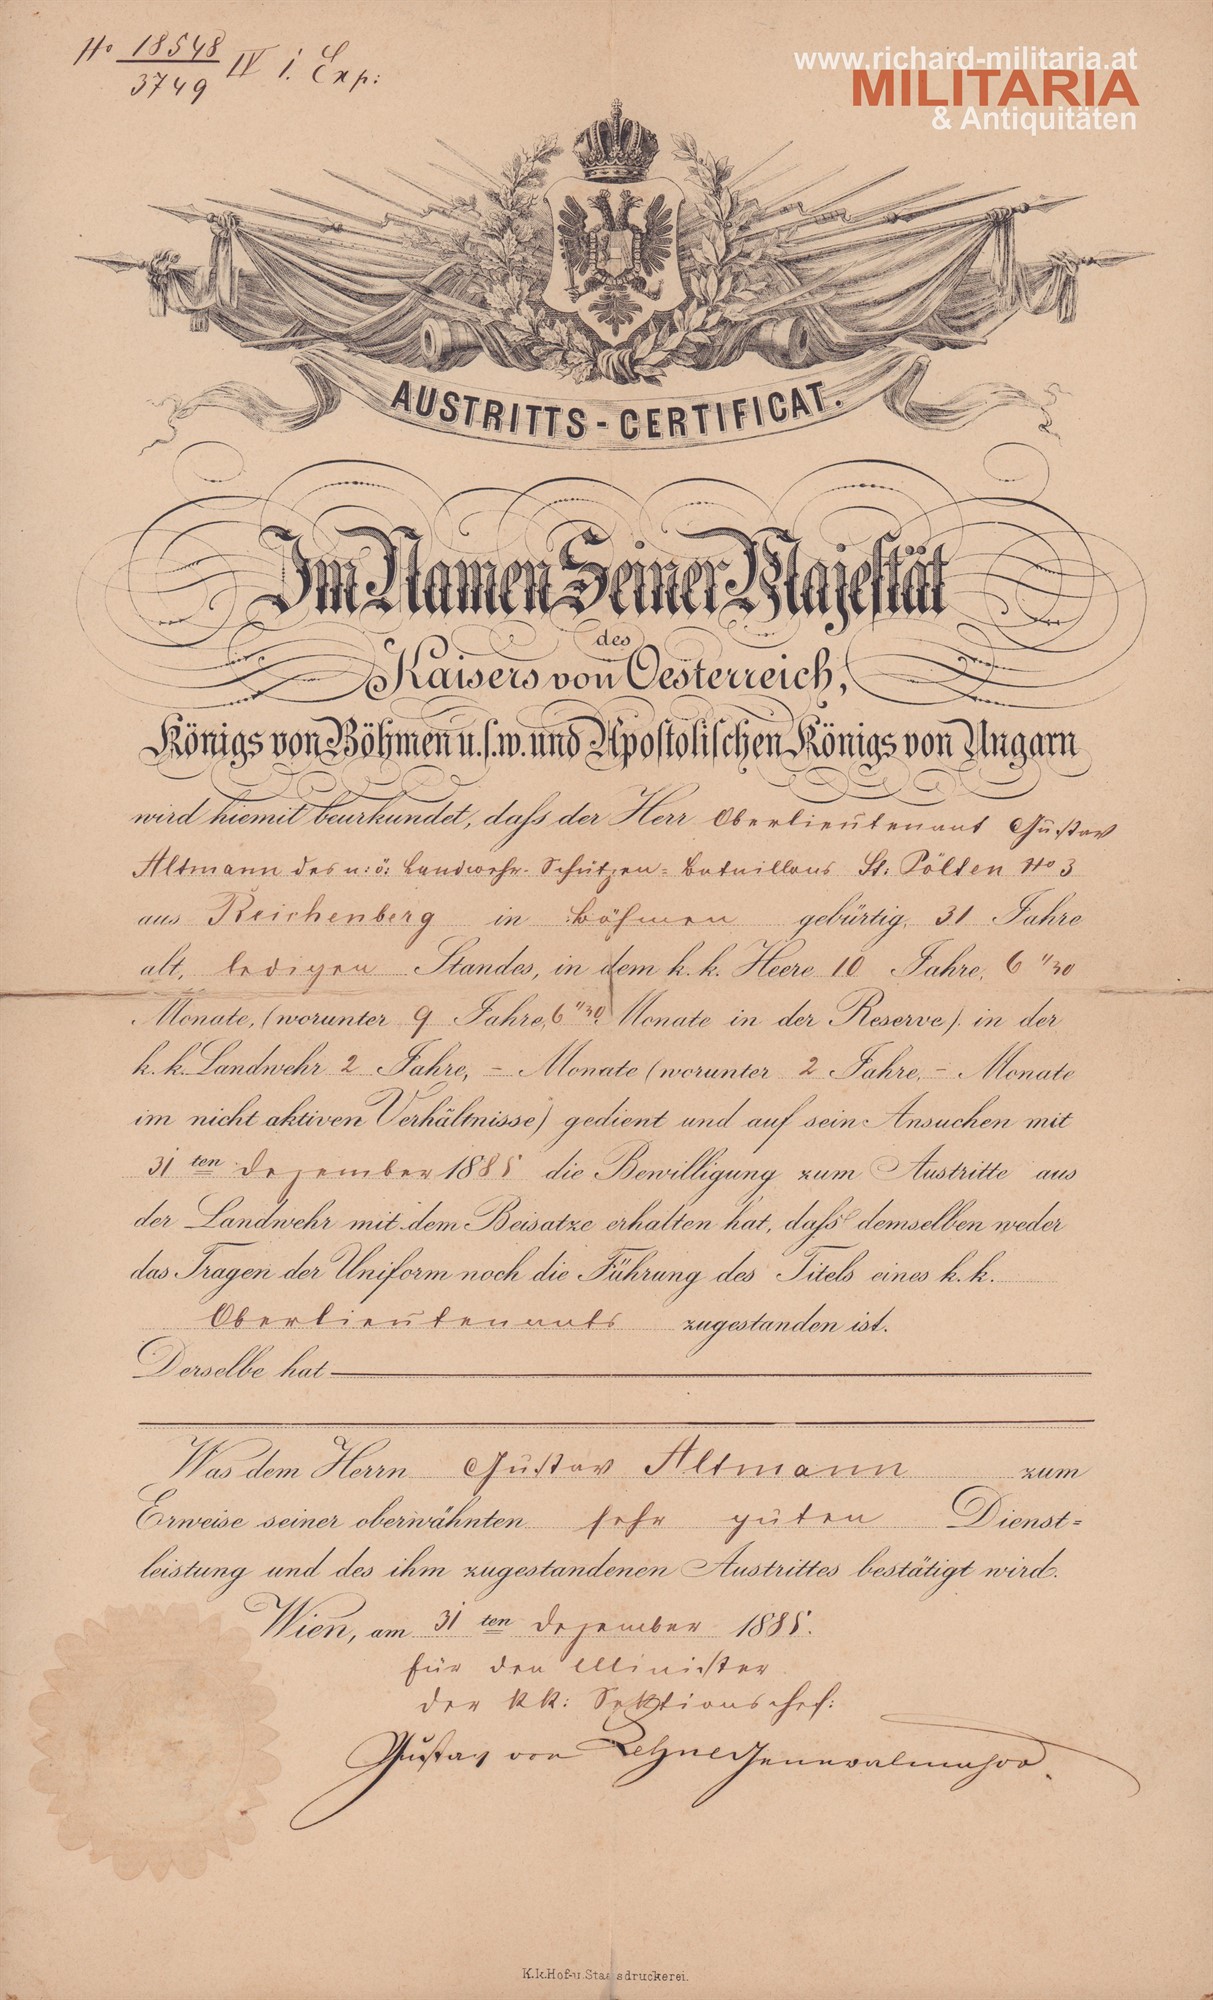 No 18548/3749 IV i. Exp:
www.richard-militaria.at
MILITARIA
& Antiquitäten
AUSTRITTS-CERTIFICAT.
Im Namen Seiner Majestät
des
Kaisers von Oesterreich,
Königs von Böhmen u.s.w. und Apostolischen Königs von Ungarn
wird hiemit beurkundet, dass der Herr Oberlieutenant Gustav
Altmann des n: ö: Landwehr-Schützen-Bataillons St: Pölten No 3
aus Reichenberg in Böhmen gebürtig, 31 Jahre
alt, ledigen Standes, in dem k. k. Heere 10 Jahre, 6 "/30
Monate, (worunter 9 Jahre, 6 "/30 Monate in der Reserve) in der
k. k. Landwehr 2 Jahre, – Monate (worunter 2 Jahre, – Monate
im nicht aktiven Verhältnisse) gedient und auf sein Ansuchen mit
31 ten Dezember 1885 die Bewilligung zum Austritte aus
der Landwehr mit dem Beisatze erhalten hat, dass demselben weder
das Tragen der Uniform noch die Führung des Titels eines k. k.
Oberlieutenants zugestanden ist.
Derselbe hat
Was dem Herrn Gustav Altmann zum
Erweise seiner oberwähnten sehr guten Dienst=
leistung und des ihm zugestandenen Austrittes bestätigt wird.
Wien, am 31 ten Dezember 1885.
Für den Minister
der kk: Sektionschef:
Gustav von Lehne Generalmajor
K.k. Hof- u. Staatsdruckerei.